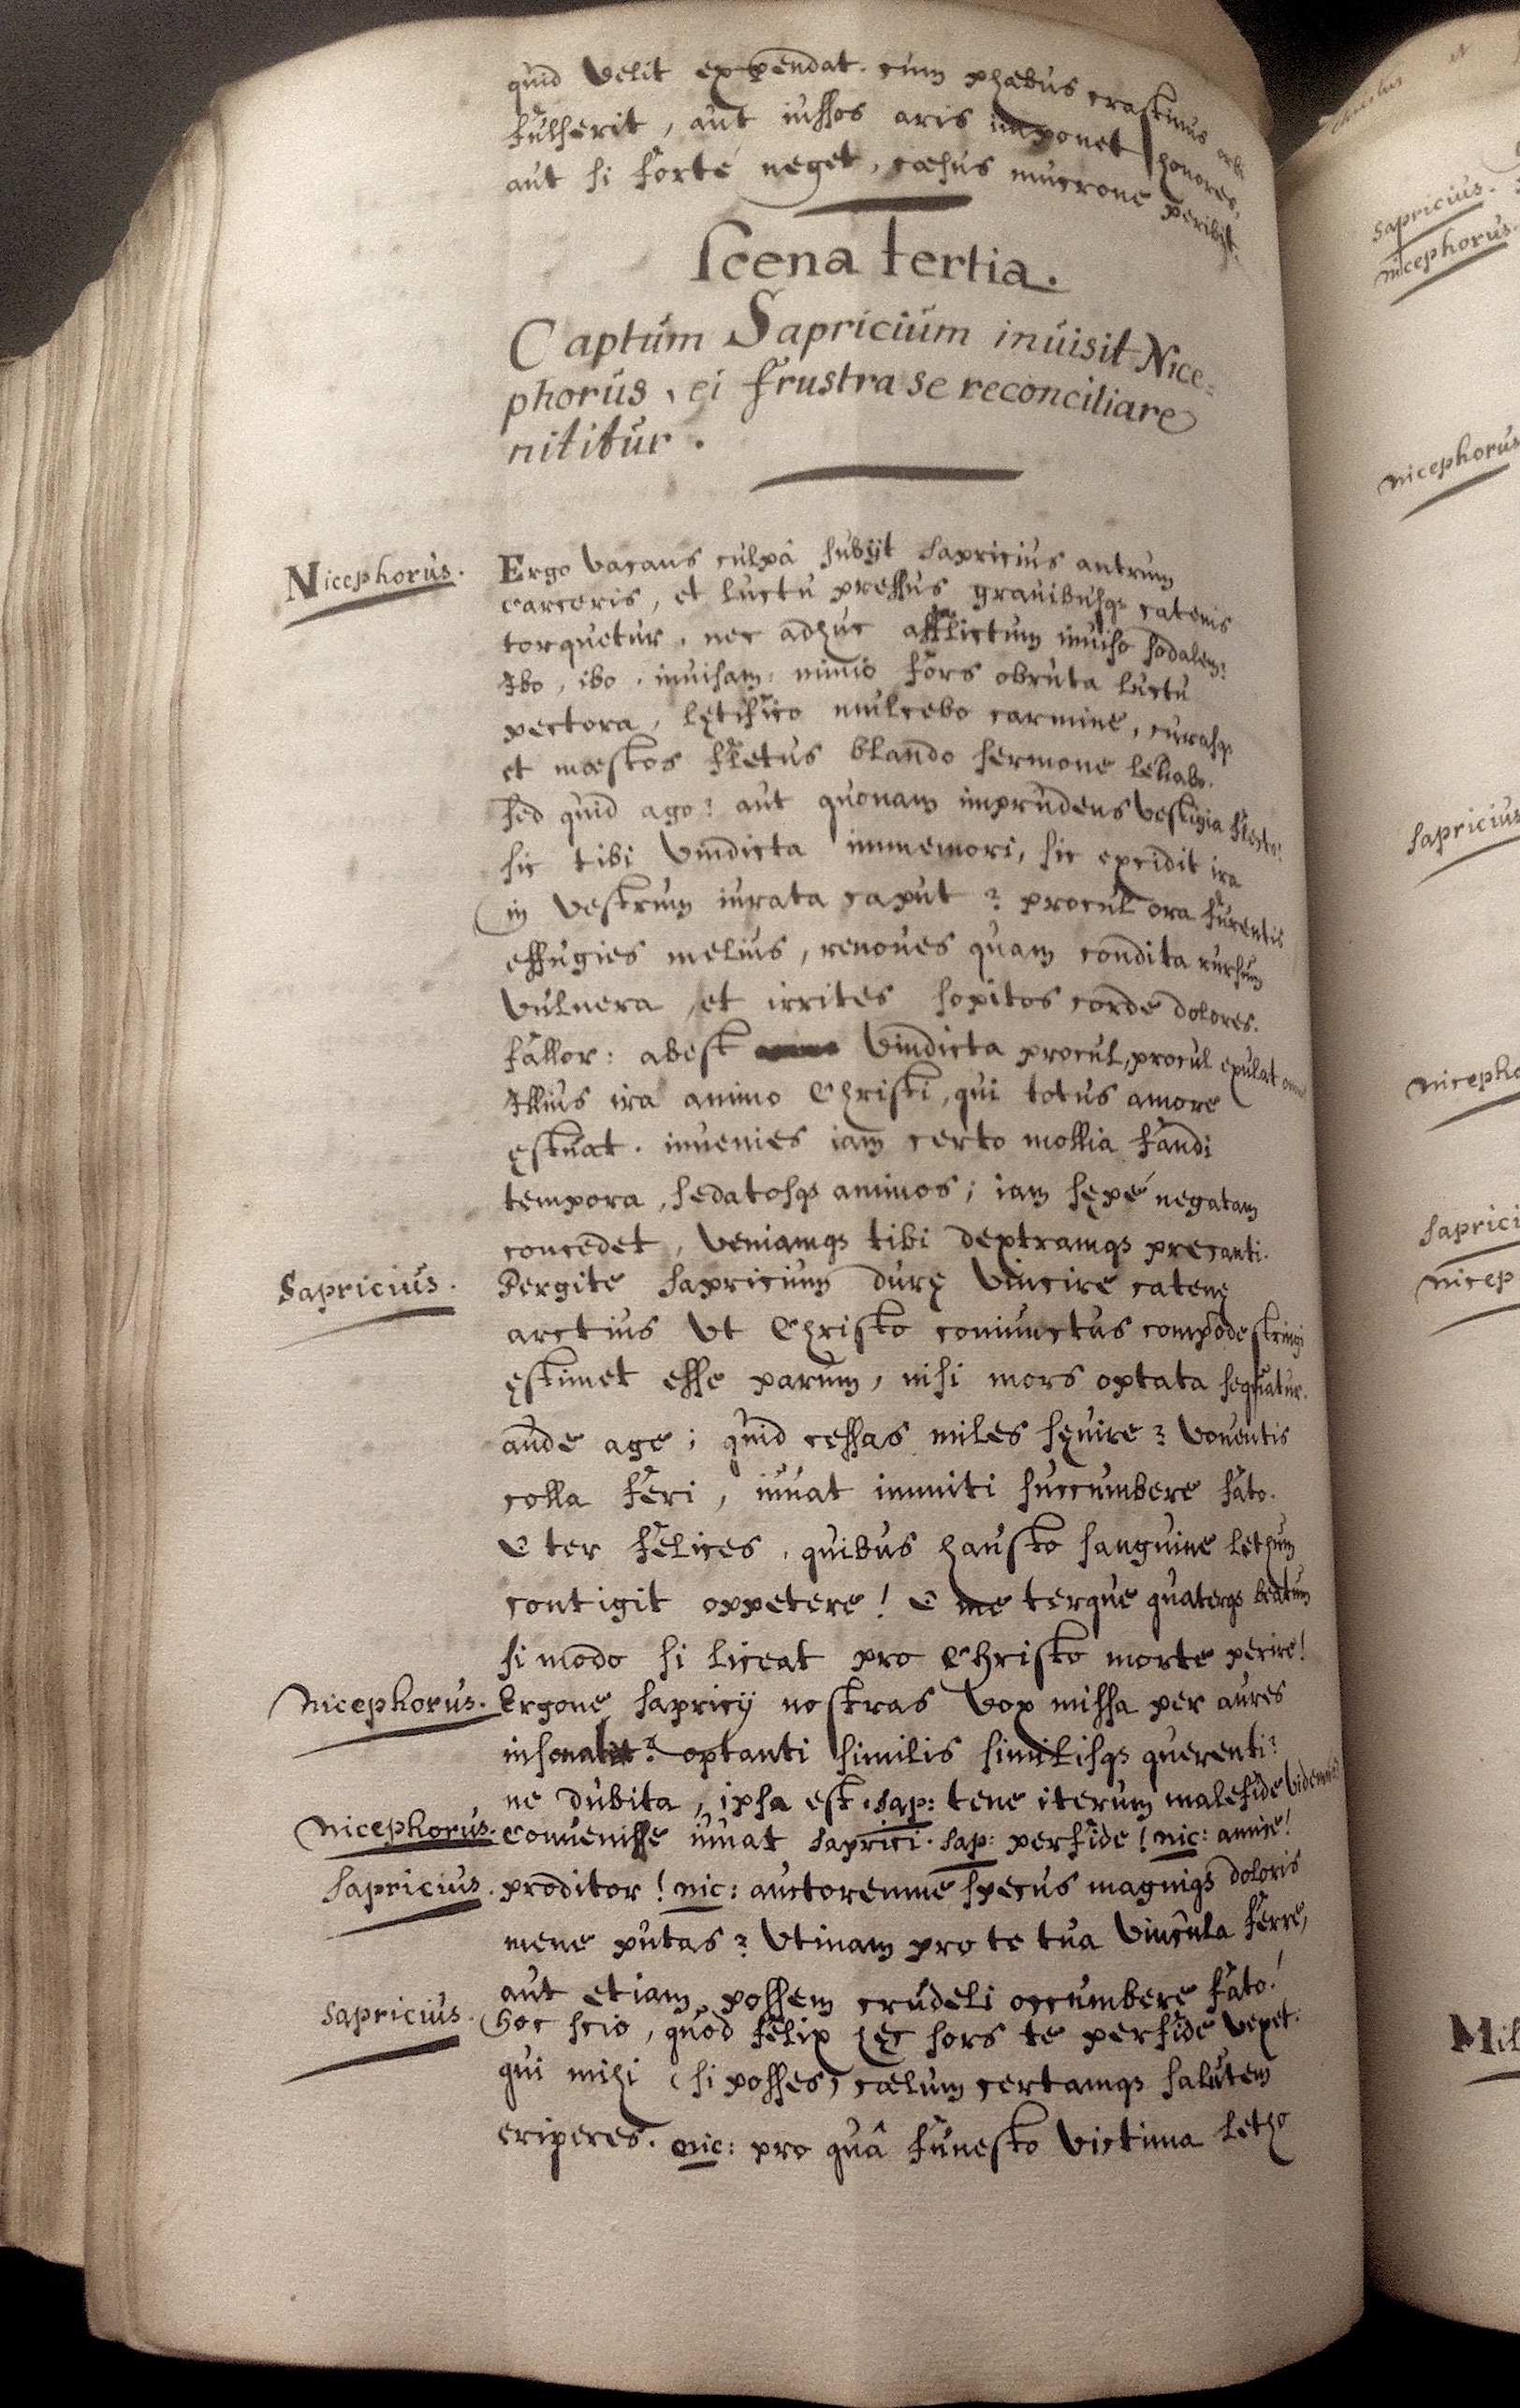 quid velit expendat. cum phæbus crastinus orbi
fulserit, aut iussos aris imponet honores,
aut si forte neget, cæsus mucrone peribit.
Scena tertia.
Captum Sapricium inuisit Nice=
phorus, ei frustra se reconciliare
nititur.
Nicephorus. Ergo vacans culpâ subijt Sapricius antrum
carceris, et luctu pressus grauibusq; catenis
torquetur, nec adhuc afflictum inuiso sodalem?
Ibo, ibo, inuisam: nimio fors obruta luctu
pectora, lętifico mulcebo carmine, curasq;
et mæstos fletus blando sermone leuabo.
sed quid ago? aut quonam imprudens vestigia flecto?
sic tibi vindicta immemori, sic excidit ira
in vestrum iurata caput? procul ora furentis
effugies melius, renoues quam condita rursum
vulnera, et irrites sopitos corde dolores.
fallor: abest vindicta procul, procul exulat omnis
Illius ira animo Christi, qui totus amore
ęstuat. inuenies iam certo mollia fandi
tempora, sedatosq; animos; iam sępe negatam
concedet, veniamq; tibi dextramq; precanti.
Sapricius. Pergite Sapricium durę vincire catenę
arctius vt Christo coniunctus compede stringi
ęstimet esse parum, nisi mors optata sequatur.
aude age; quid cessas miles sęuire? vouentis
colla feri, iuuat immiti succumbere fato.
O ter felices, quibus hausto sanguine lethum
contigit oppetere! O me terque quaterq; beatum
si modo si liceat pro Christo morte perire!
Nicephorus. Ergone Sapricij nostras vox missa per aures
insonat? optanti similis similisq; querenti?
ne dubita, ipsa est. Sap: tene iterum malefide videmus?
Nicephorus. Conuenisse iuuat Saprici. Sap: perfide! nic: amice!
Sapricius. proditor! nic: auctoremne specus magniq; doloris
mene putas? vtinam pro te tua vincula ferre,
aut etiam possem crudeli occumbere fato!
Sapricius. Hoc scio, quod felix hęc sors te perfide vexet.
qui mihi (si posses) cælum certamq; salutem
eriperes. nic: pro quâ funesto victima letho
Sapricius.
Nicephorus.
Nicephorus
Sapricius
Nicepho
Saprici
Nicep
Mil